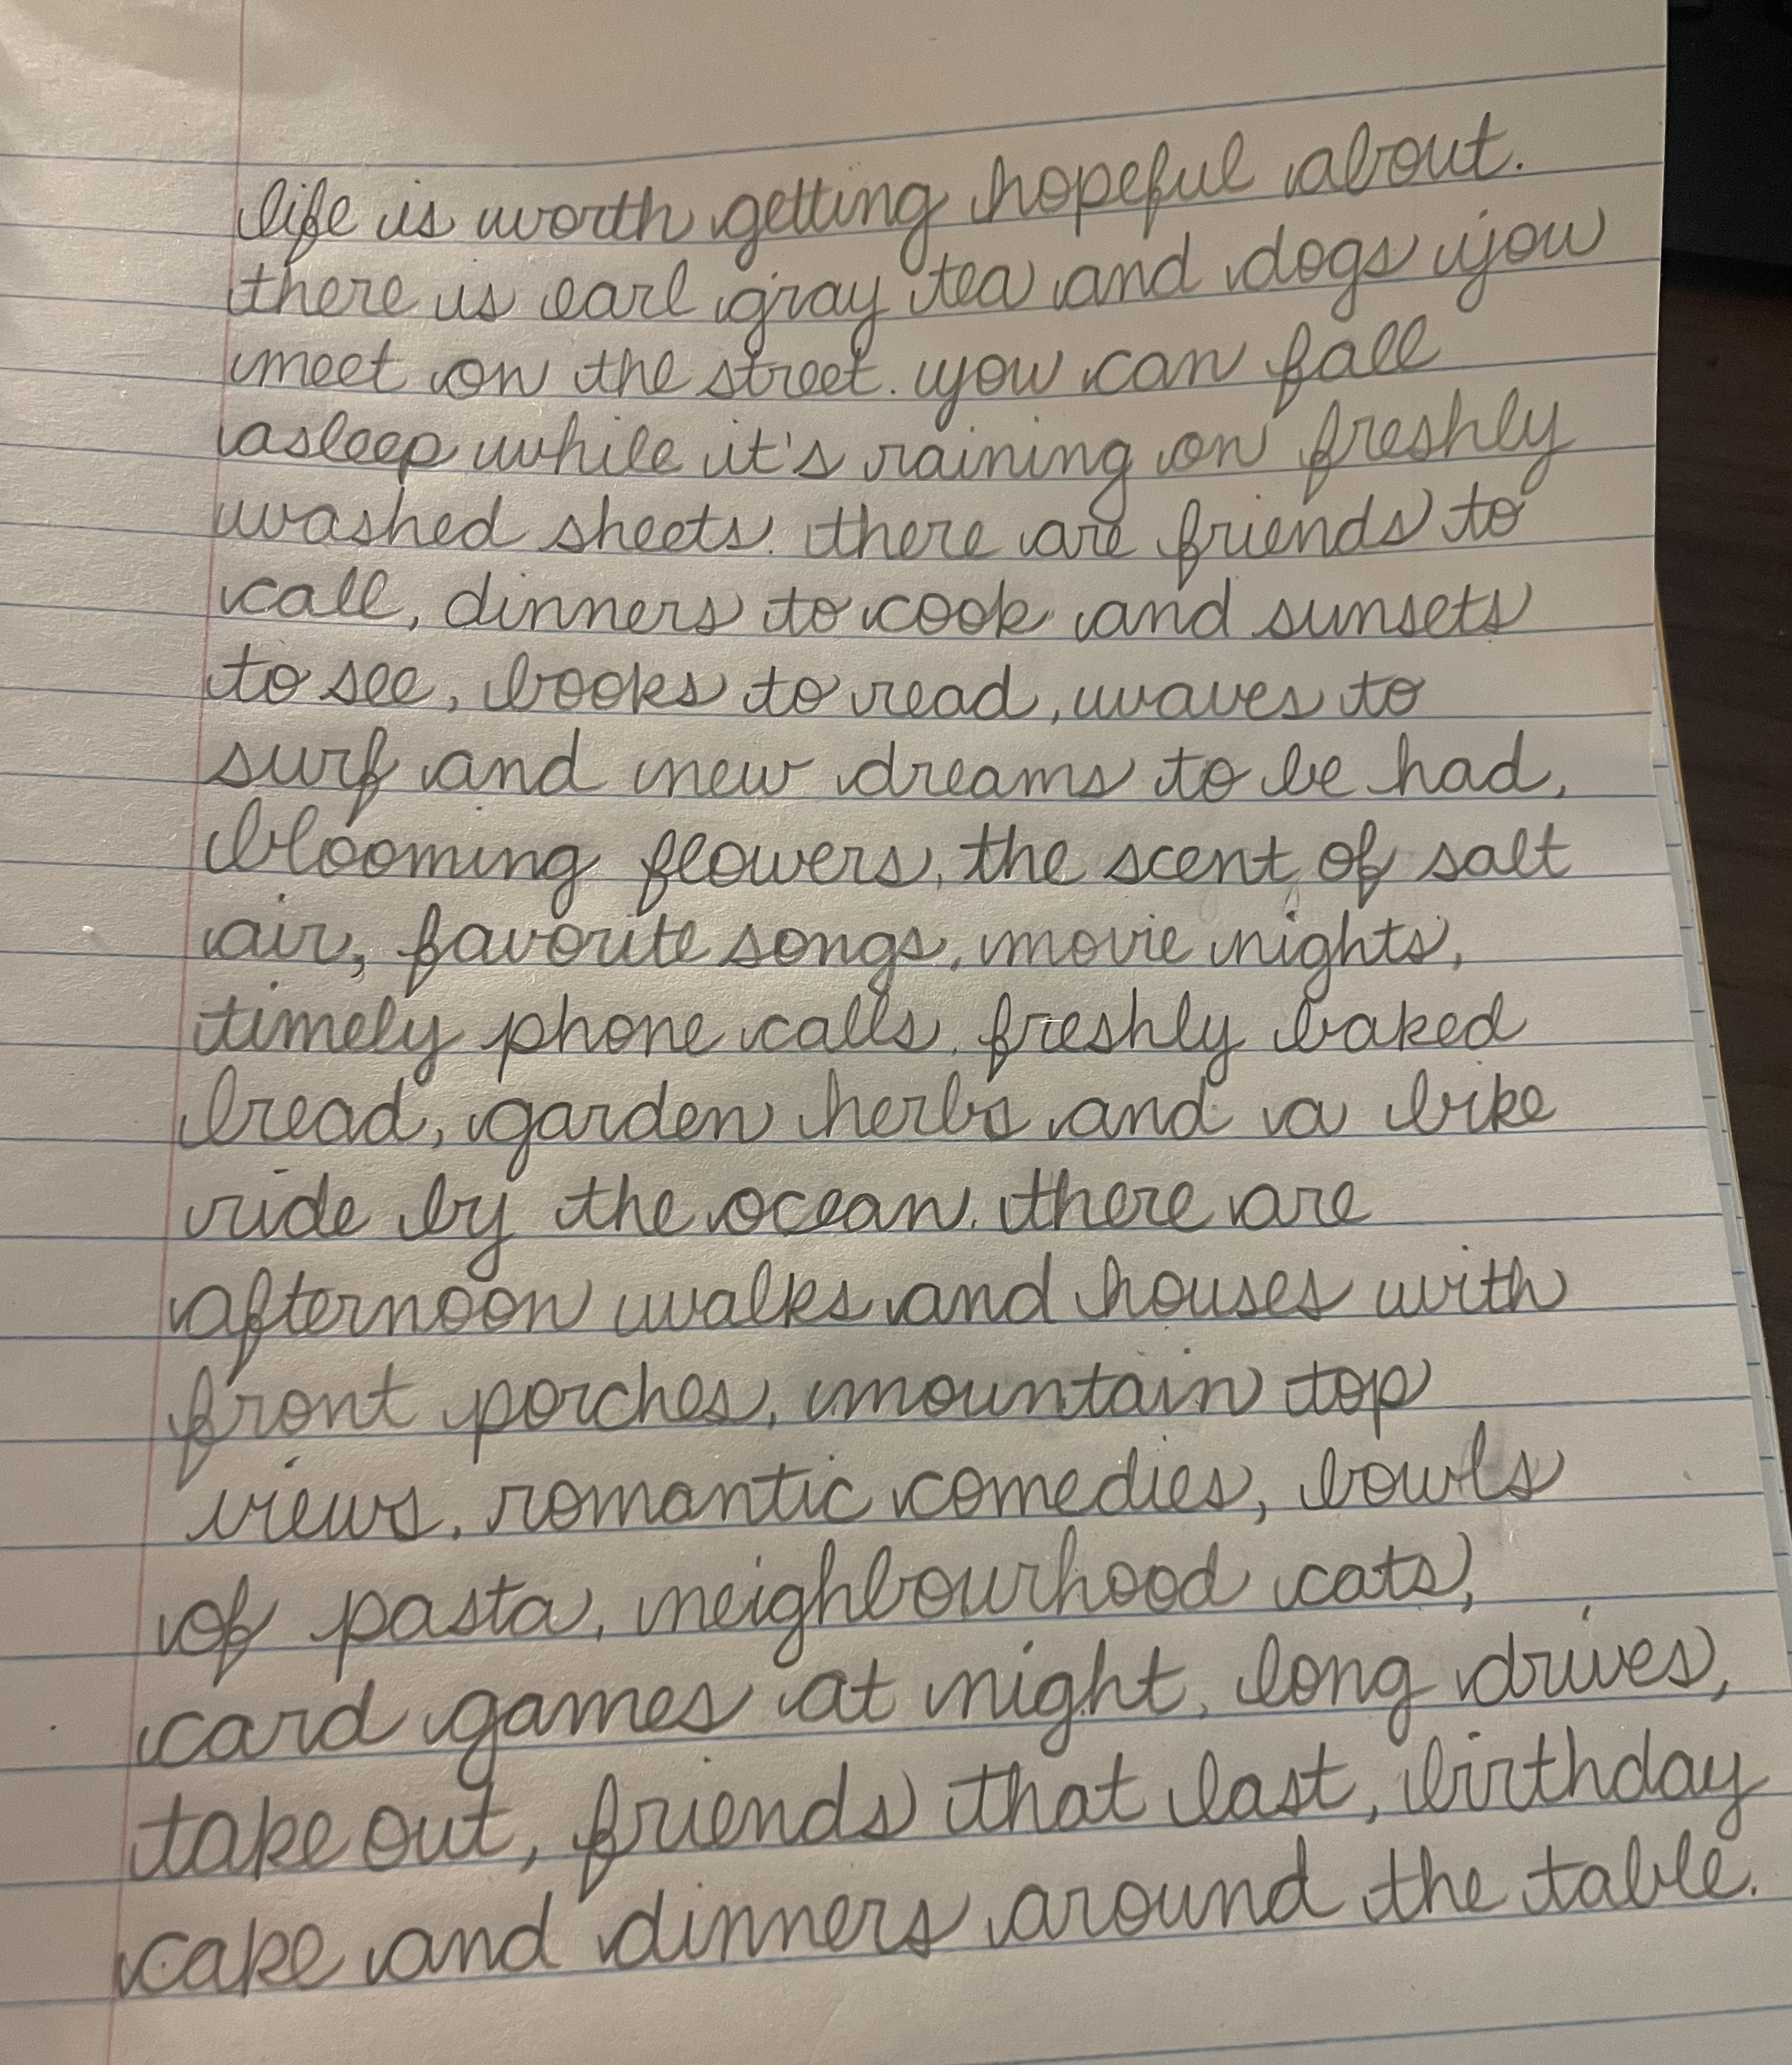 life is worth getting hopeful about.
there is earl gray tea and dogs you
meet on the street. you can fall
asleep while it's raining on freshly
washed sheets. there are friends to
call, dinners to cook and sunsets
to see, books to read, waves to
surf and new dreams to be had,
blooming flowers, the scent of salt
air, favorite songs, movie nights,
timely phone calls, freshly baked
bread, garden herbs and a bike
ride by the ocean. there are
afternoon walks and houses with
front porches, mountain top
views, romantic comedies, bowls
of pasta, neighbourhood cats,
card games at night, long drives,
take out, friends that last, birthday
cake and dinners around the table.